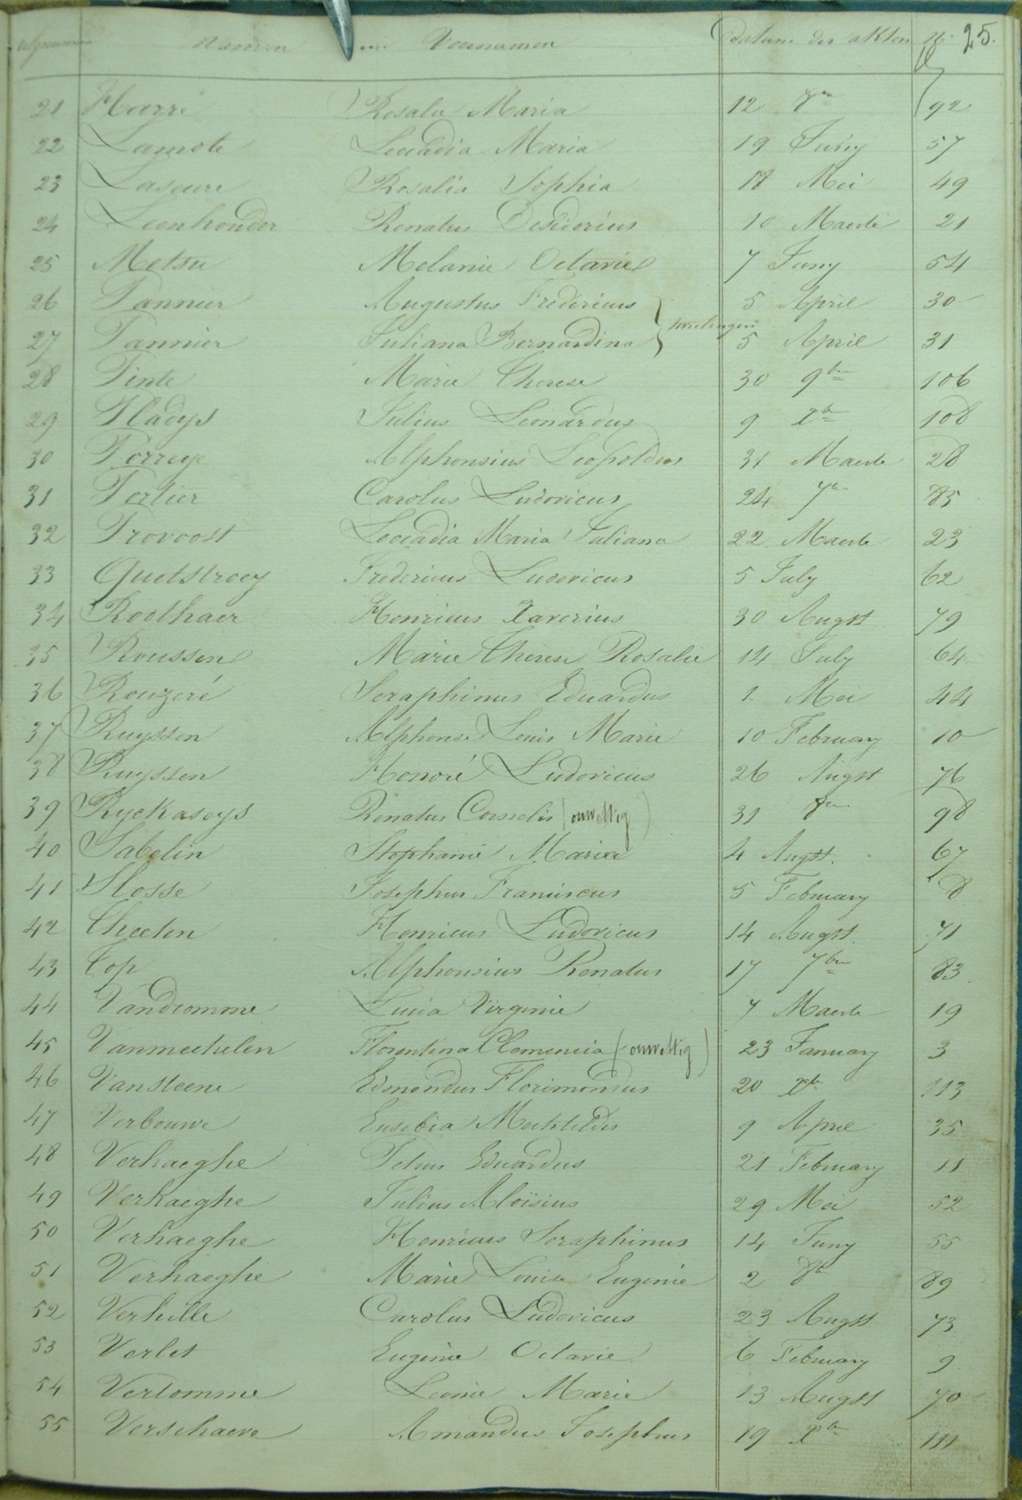 Namen en Voornamen Datum der akten N° 25.
21 Harri Rosalie Maria 12 8re 92
22 Lamote Leocadia Maria 19 Juny 57
23 Laseure Rosalia Sophia 18 Mei 49
24 Leenhouder Renatus Desiderius 10 Maerte 21
25 Metsu Melanie Octavie 7 Juny 54
26 Pannier Augustus Fredericus 5 April 30
27 Pannier Juliana Bernardina } tweelingen 5 April 31
28 Pinte Marie Therese 30 9bre 106
29 Pladys Julius Leonardus 9 Xbre 108
30 Porreye Alphonsius Leopoldus 31 Maerte 28
31 Portier Carolus Ludovicus 24 7re 85
32 Provoost Leocadia Maria Juliana 22 Maerte 23
33 Quetstroey Fredericus Ludovicus 5 July 62
34 Roothaer Henricus Xaverius 30 Augst 79
35 Roussen Marie Therese Rosalie 14 July 64
36 Rouzeré Seraphinus Eduardus 1 Mei 44
37 Ruyssen Alphonse Louis Marie 10 February 10
38 Ruyssen Honoré Ludovicus 26 Augst 76
39 Ryckaseys Renatus Cornelis (onwettig) 31 8re 98
40 Sabelin Stephanie Maria 4 Augst. 67
41 Slosse Josephus Franciscus 5 February 8
42 Theeten Henricus Ludovicus 14 Augst. 71
43 Top Alphonsius Renatus 17 7bre 83
44 Vandromme Lucia Virginie 7 Maerte 19
45 Vanmechelen Florentina Clemencia (onwettig) 23 January 3
46 Vansteene Edmondus Florimondus 20 Xbr 113
47 Verbouwe Eusebia Mechtildis 9 April 35
48 Verhaeghe Petrus Eduardus 21 February 11
49 Verhaeghe Julius Aloïsius 29 Mei 52
50 Verhaeghe Henricus Seraphinus 14 Juny 55
51 Verhaeghe Marie Louise Eugenie 2 8re 89
52 Verhille Carolus Ludovicus 23 Augst 73
53 Verlet Eugenie Octavie 6 February 9
54 Verlomme Leonie Marie 13 Augst 70
55 Verschaeve Amandus Josephus 19 Xbre 111